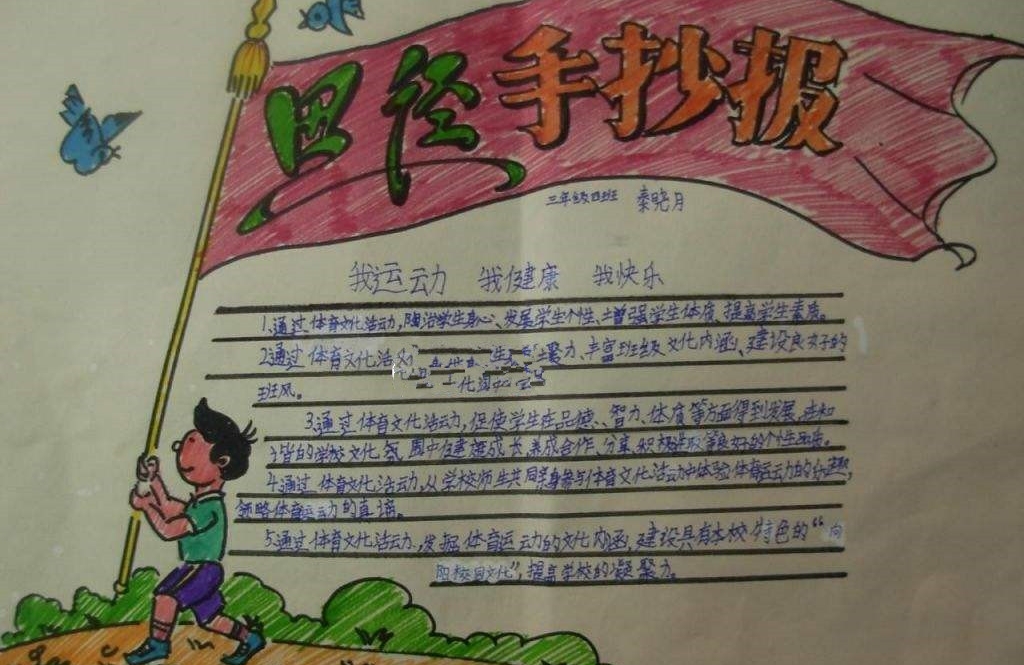 思径 手抄报
三年级四班 秦晓月
我运动 我健康 我快乐
1.通过体育文化活动,陶冶学生身心、发展学生个性、增强学生体质、提高学生素质。
2.通过体育文化活 聚力、丰富班级文化内涵、建设良好的
班风。
3.通过体育文化活动,促使学生在品德、智力、体质等方面得到发展,在和
谐的学校文化氛围中健康成长,养成合作、分享、积极进取等良好的个性品质。
4.通过体育文化活动,从学校师生共同亲身参与体育文化活动中体验体育运动的乐趣,
领略体育运动的真谛。
5.通过体育文化活动,发掘体育运动的文化内涵,建设具有本校特色的“向
阳校园文化”,提高学校的凝聚力。